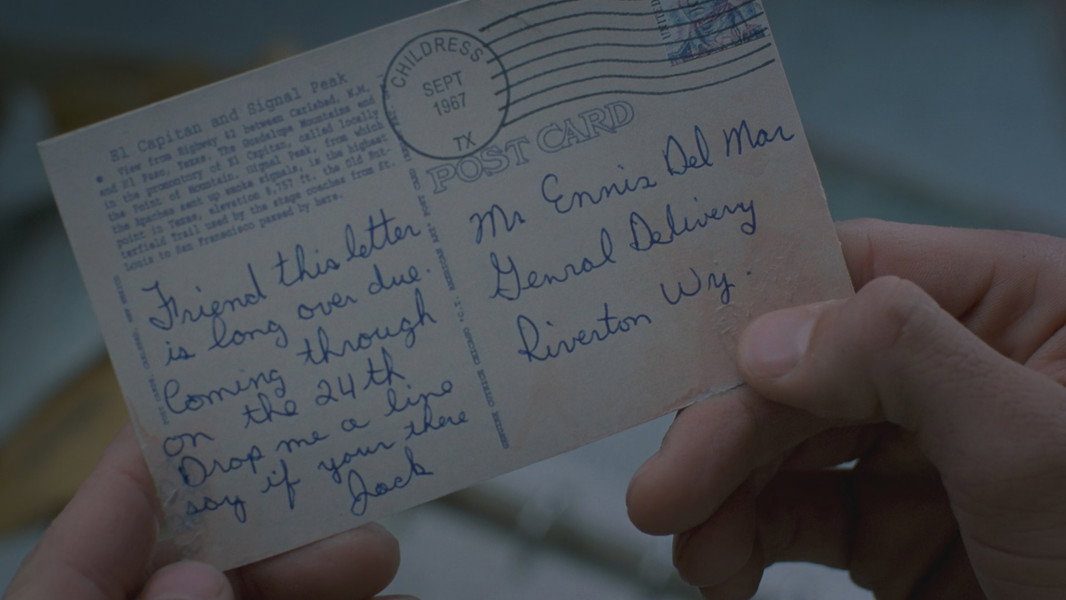 El Capitan and Signal Peak
View from Highway 62 between Carlsbad, N.M.
and El Paso, Texas. The Guadalupe Mountains end
in the promontory of El Capitan, called locally
the Point of Mountain. Signal Peak, from which
the Apaches sent up smoke signals, is the highest
point in Texas, elevation 8,757 ft. the Old But-
terfield Trail used by the stage coaches from St.
Louis to San Francisco passed by here.
CHILDRESS
SEPT
1967
TX
POST CARD
Friend this letter
is long over due.
Coming through
on the 24th
Drop me a line
say if your there
Jack
Mr Ennis Del Mar
Genral Delivery
Riverton Wy.